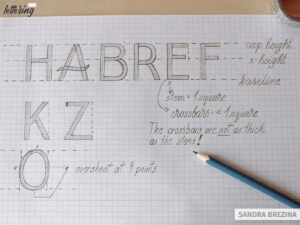 lettering
HABREF
cap height
x-height
baseline
stem = 1 square
crossbars = < 1 square
The crossbars are not as thick
as the stems!
KZ
O
overshoot at 4 points
SANDRA BREZINA